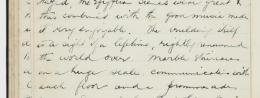 the Egyptian scenes were great &
this combined with the good music made
it very enjoyable. The building itself
is a sight of a lifetime, rightly renowned
the world over. Marble staircases
on a huge scale communicate with
each floor and a promenade